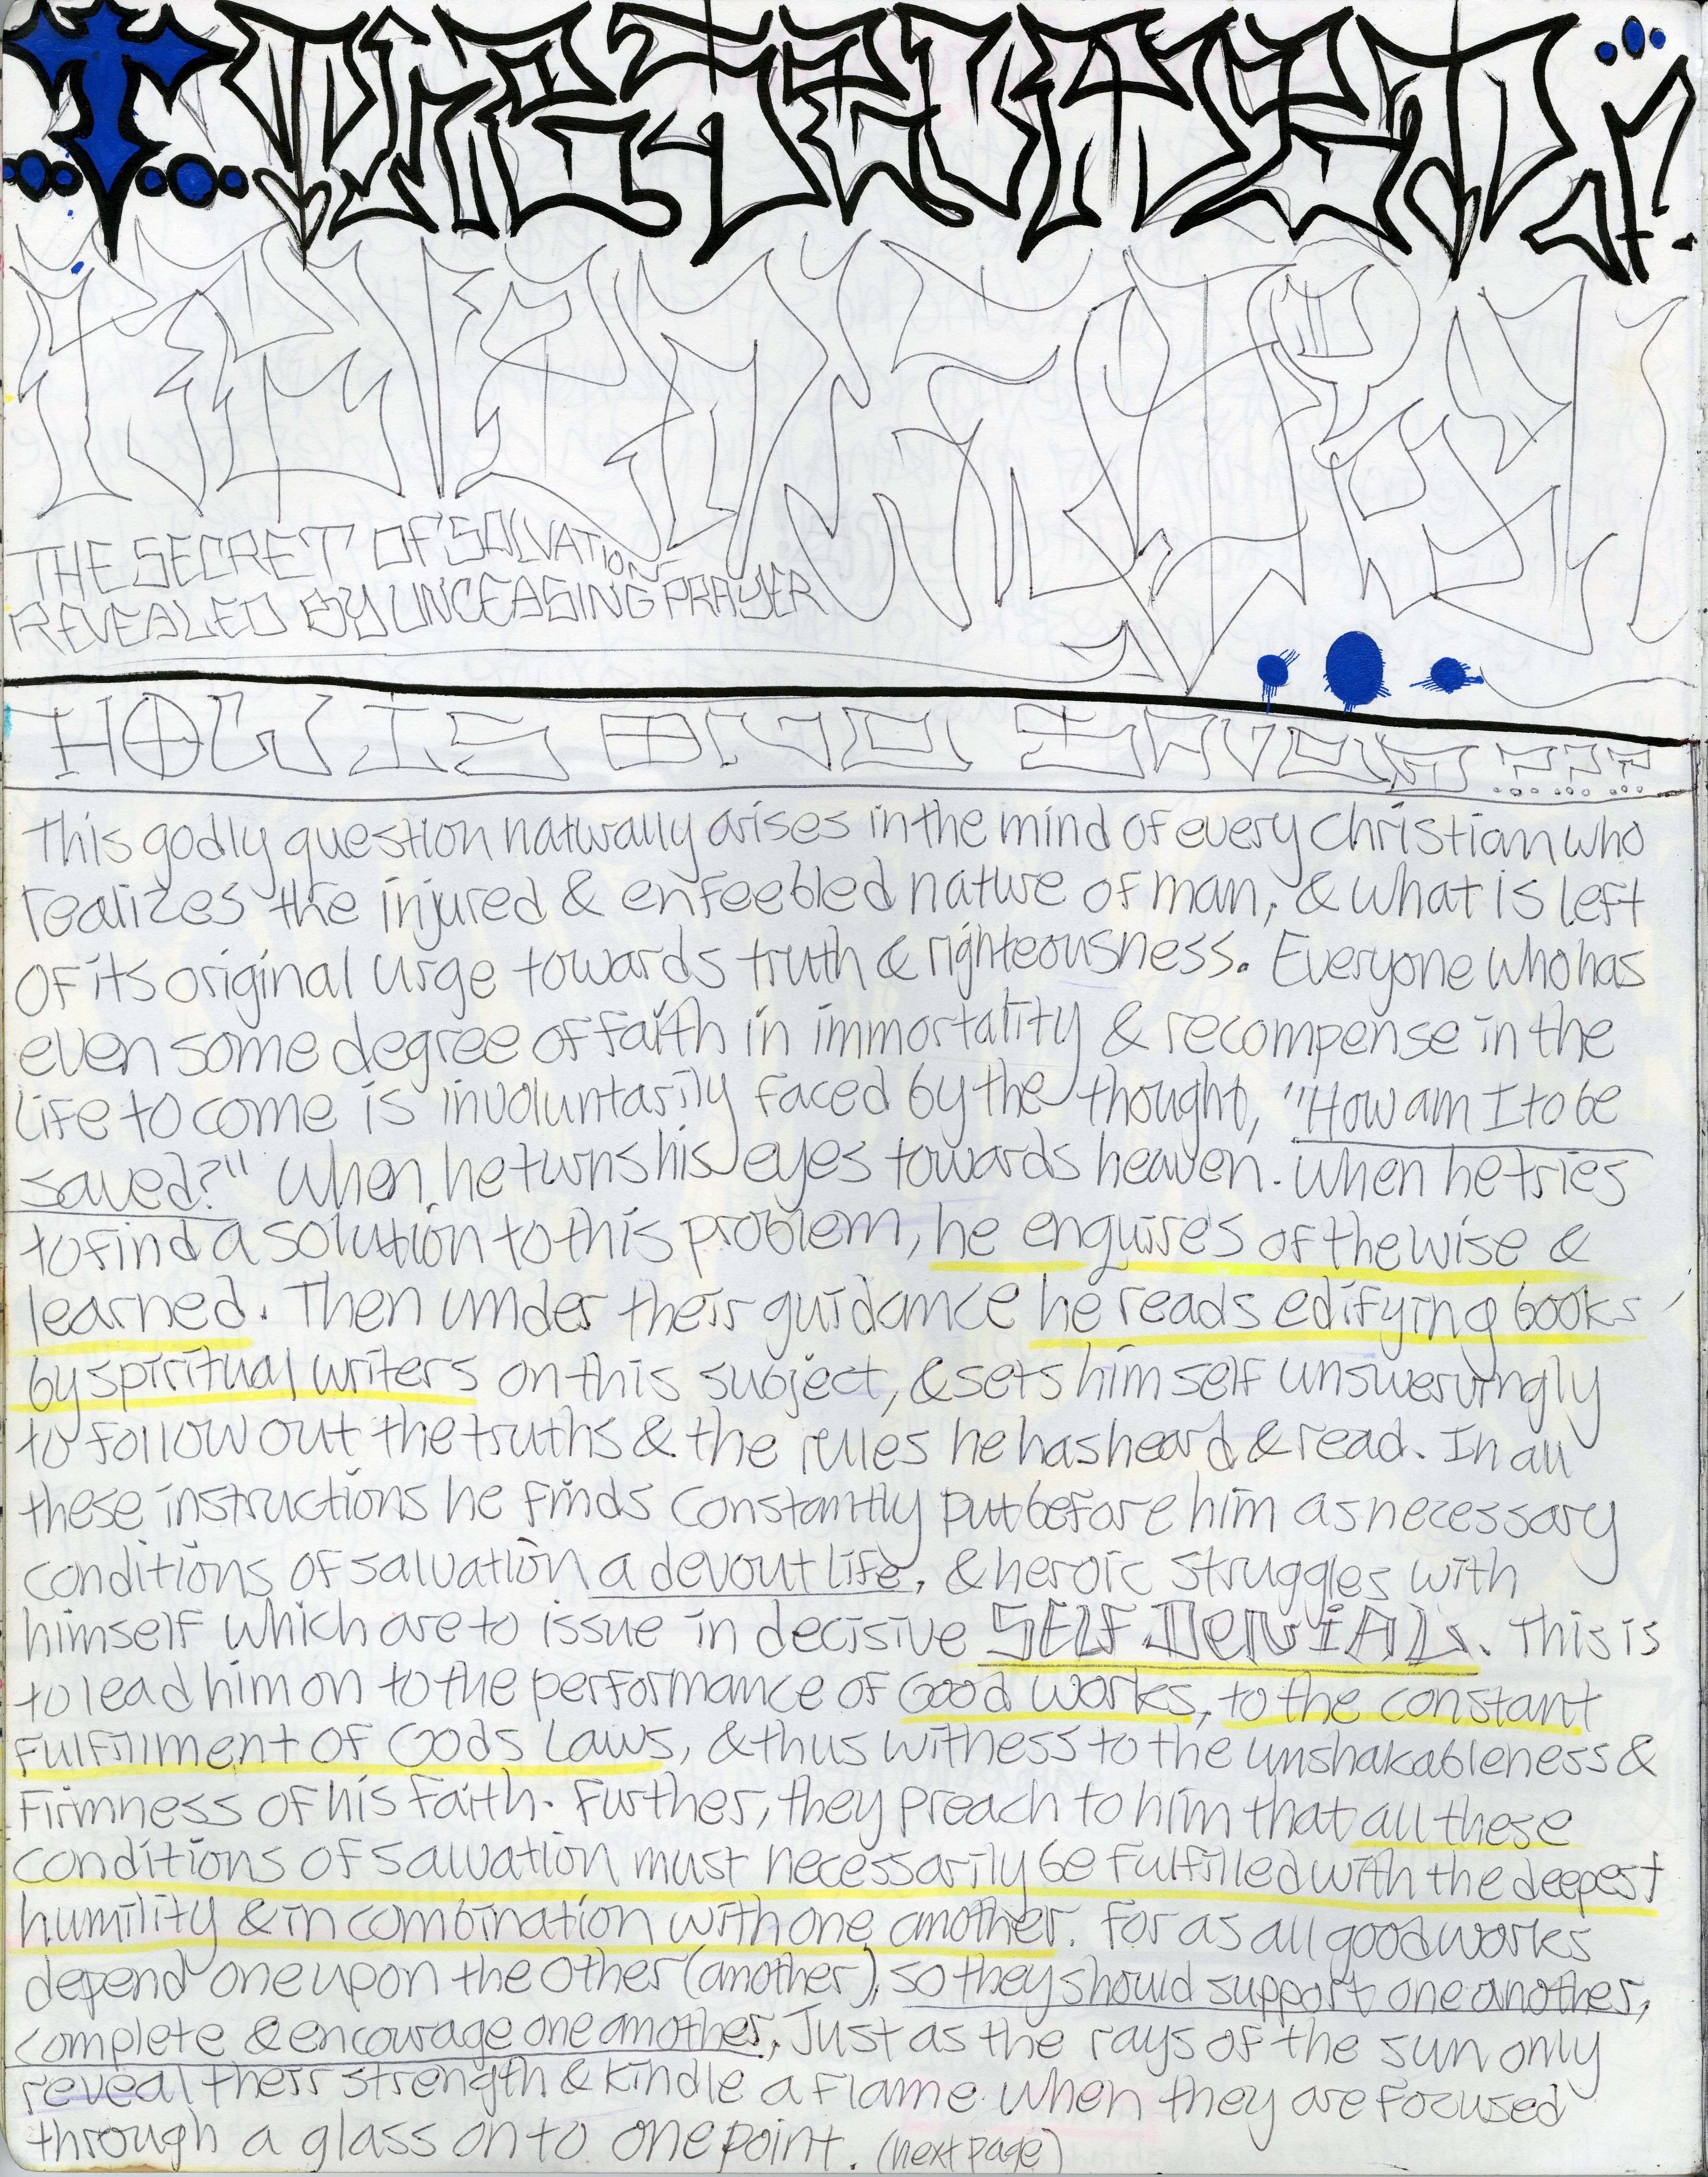 The Secret
THE SECRET OF SOLVATION
REVEALED BY UNCEASING PRAYER
HOW IS ONE SAVED ???
This godly question naturally arises in the mind of every Christian who
realizes the injured & enfeebled nature of man, & what is left
of its original urge towards truth & righteousness. Everyone who has
even some degree of faith in immortality & recompense in the
life to come is involuntarily faced by the thought, "How am I to be
saved?" When he turns his eyes towards heaven. When he tries
to find a solution to this problem, he enquires of the wise &
learned. Then under their guidance he reads edifying books
by spiritual writers on this subject, & sets himself unswervingly
to follow out the truths & the rules he has heard & read. In all
these instructions he finds constantly put before him as necessary
conditions of salvation a devout life, & heroic struggles with
himself which are to issue in decisive SELF DENIAL. This is
to lead him on to the performance of Good works, to the constant
fulfillment of Gods Laws, & thus witness to the unshakableness &
firmness of his faith. Further, they preach to him that all these
conditions of salvation must necessarily be fulfilled with the deepest
humility & in combination with one another. For as all good works
depend one upon the other (another), so they should support one another,
complete & encourage one another, Just as the rays of the sun only
reveal their strength & kindle a flame when they are focused
through a glass on to one point. (next page)